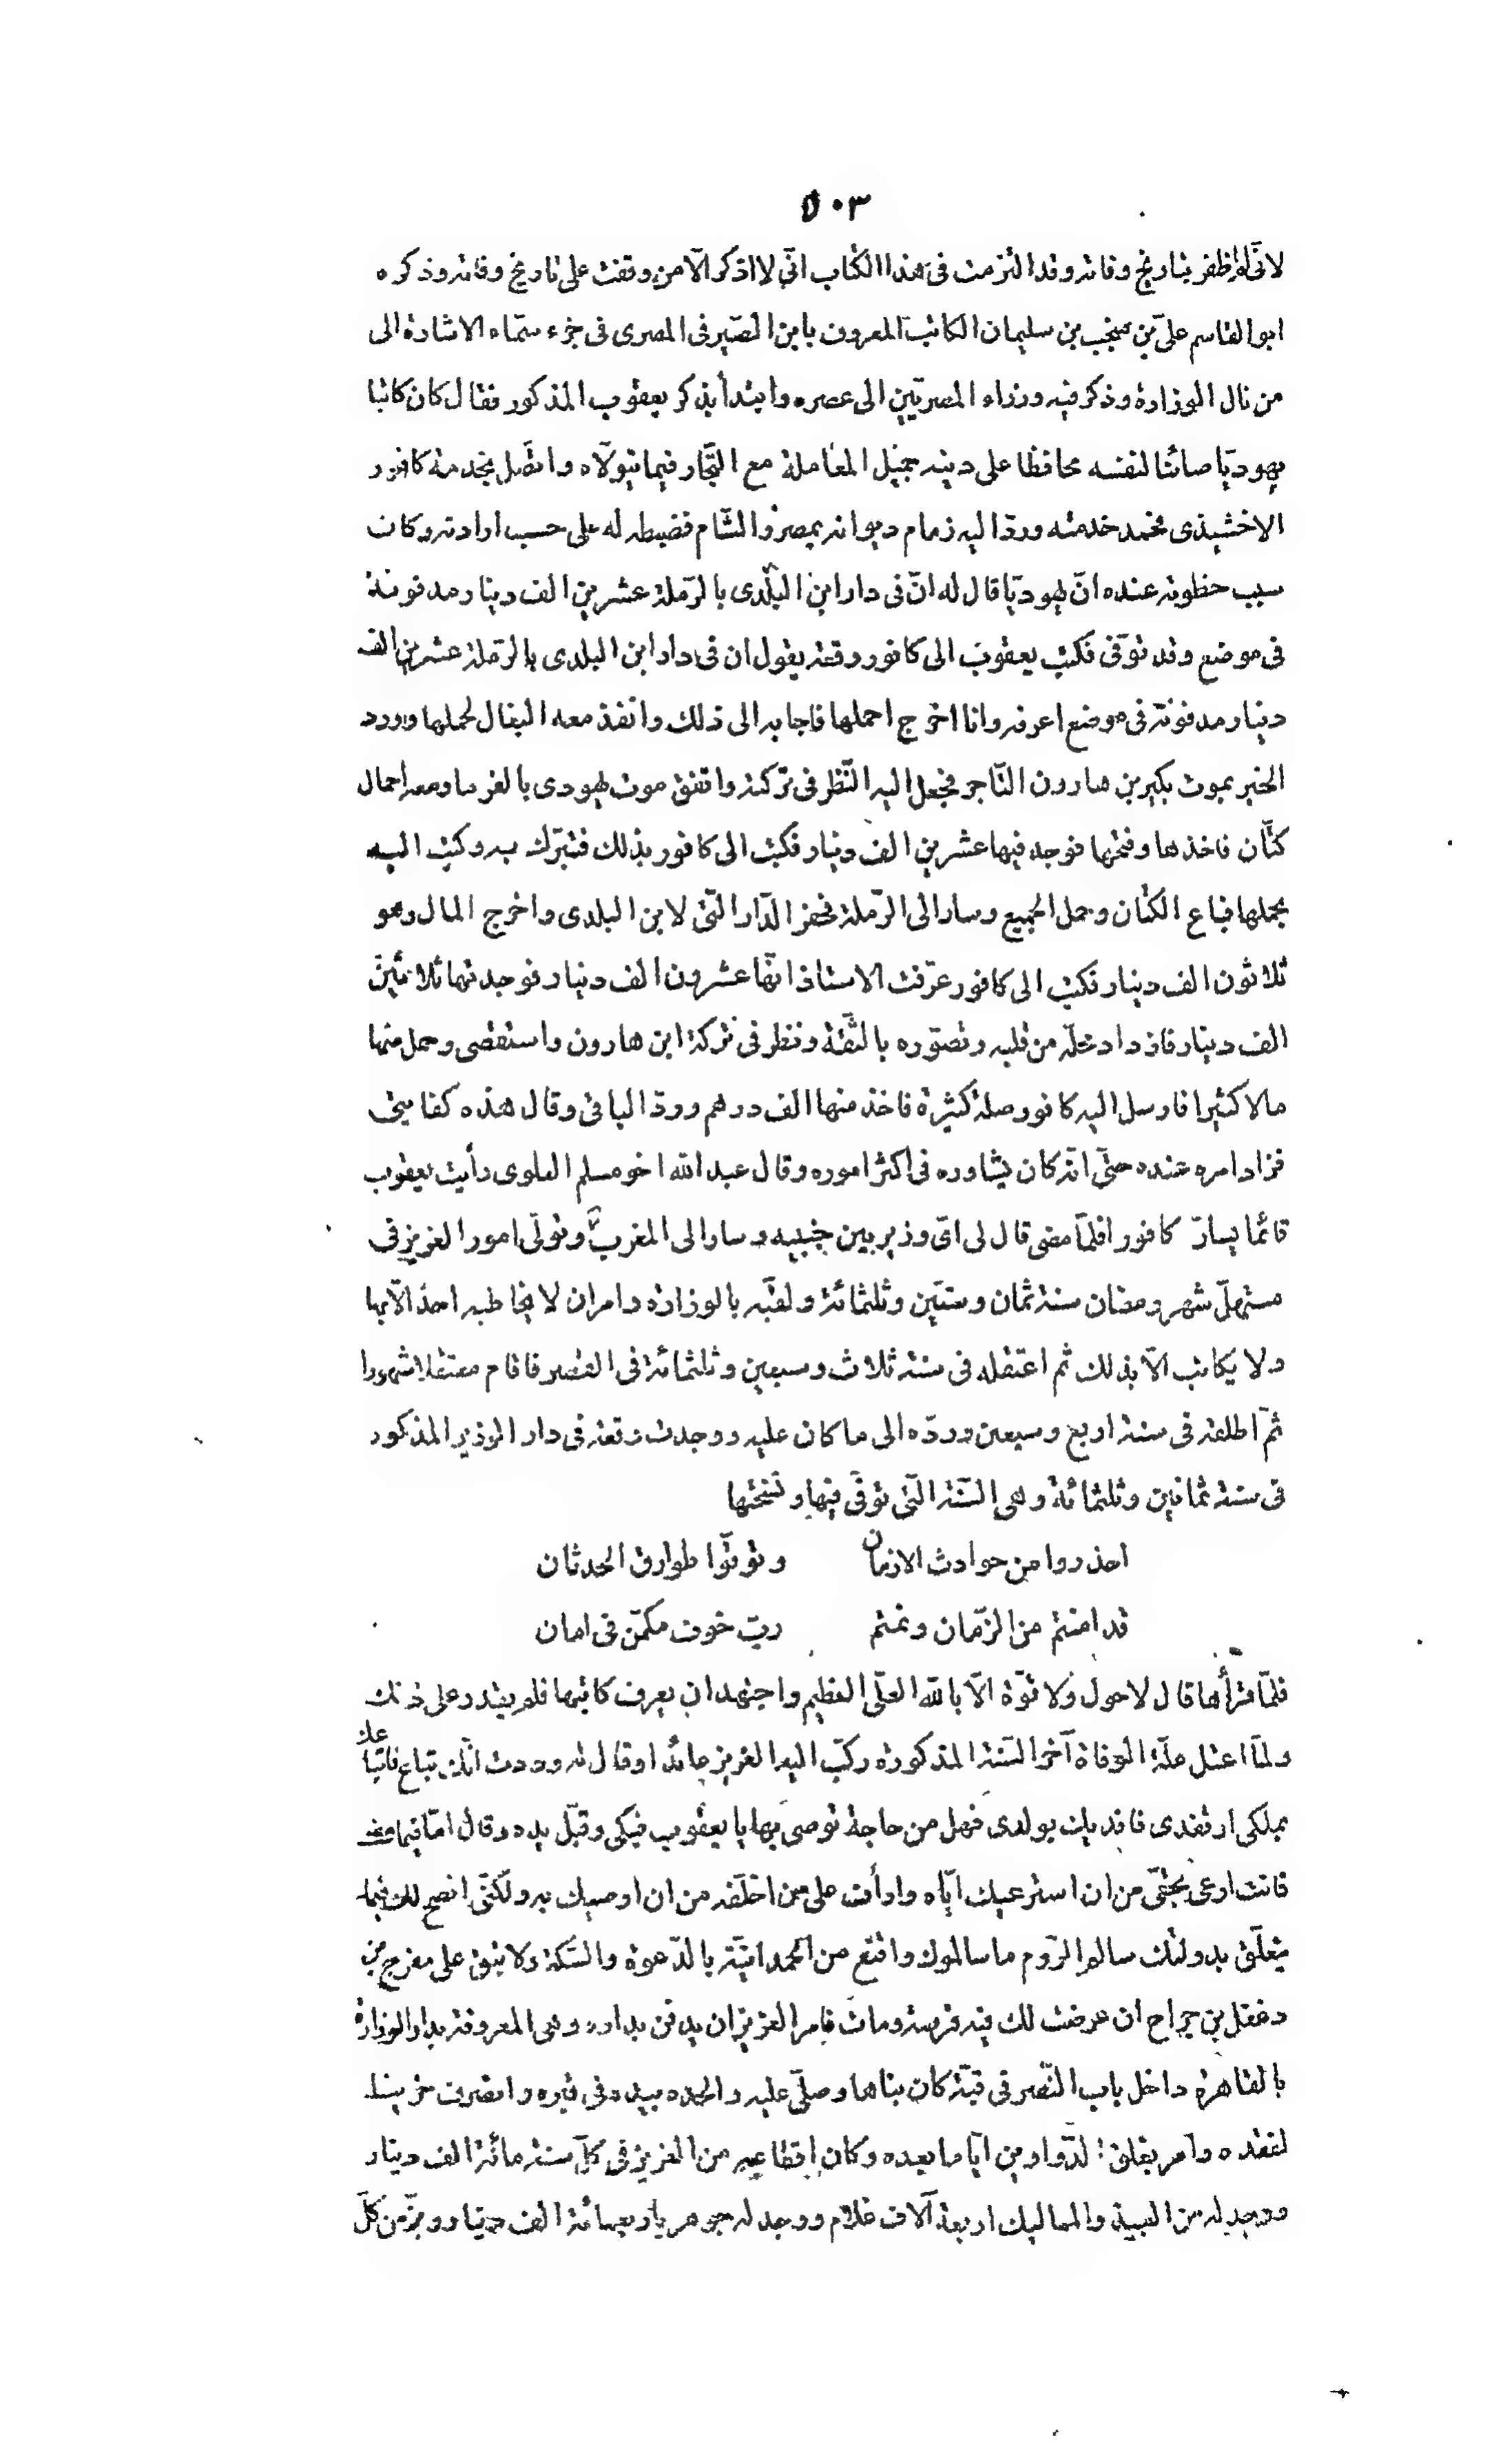 ٥٠٣
لانّى لم اظفر بتاريخ وفاته وقد التزمت فى هذا الكتاب انّى لا اذكر الّا من وقفت على تاريخ وفاته وذكره
ابو القاسم علىّ بن منجب بن سليمان الكاتب المعروف بابن الصّيرفى المصرى فى جزء سمّاه الاشارة الى
من نال الوزارة وذكر فيه وزراء المصريّين الى عصره وابتدأ بذكر يعقوب المذكور فقال كان كاتبا
يهوديّا صائنا لنفسه محافظا على دينه جميل المعاملة مع التّجار فيما يتولّاه واتّصل بخدمة كافور
الاخشيذى فحمد خدمته وردّ اليه زمام ديوانه بمصر والشّام فضبطه له على حسب ارادته وكان
سبب حظوته عنده انّ يهوديّا قال له انّ فى دار ابن البلدى بالرّملة عشرين الف دينار مدفونة
فى موضع وقد توفّى فكتب يعقوب الى كافور رقعة يقول ان فى دار ابن البلدى بالرّملة عشرين الف
دينار مدفونة فى موضع اعرفه وانا اخرج احملها فاجابه الى ذلك وانفذ معه البغال لحملها وورد
الخبر بموت بكير بن هارون التّاجر فجعل اليه النّظر فى تركته واتفق موت يهودى بالفرما ومعه احمال
كتّان فاخذها وفتحها فوجد فيها عشرين الف دينار فكتب الى كافور بذلك فتبرّك به وكتب اليه
بحملها فباع الكتان وحمل الجميع وسار الى الرّملة فحفر الدّار الّتى لابن البلدى واخرج المال وهو
ثلاثون الف دينار فكتب الى كافور عرّفت الاستاذ انّها عشرون الف دينار فوجدتها ثلاثين
الف دينار فازداد محلّه من قلبه وتصوّره بالثّقة ونظر فى تركة ابن هارون واستقصى وحمل منها
مالا كثيرا فارسل اليه كافور صلة كثيرة فاخذ منها الف درهم وردّ الباقى وقال هذه كفايتى
فزاد امره عنده حتّى انّه كان يشاوره فى اكثر اموره وقال عبد الله اخو مسلم العلوى رأيت يعقوب
قائما يسارّ كافورا فلمّا مضى قال لى اىّ وزير بين جنبيه وسار الى المغرب وتولّى امور العزيز فى
مستهلّ شهر رمضان سنة ثمان وستّين وثلثمائة ولقّبه بالوزارة وامر ان لا يخاطبه احد الّا بها
ولا يكاتب الّا بذلك ثم اعتقله فى سنة ثلاث وسبعين وثلثمائة فى القصر فاقام معتقلا شهورا
ثمّ اطلقه فى سنة اربع وسبعين وردّه الى ما كان عليه ووجدت رقعة فى دار الوزير المذكور
فى سنة ثمانين وثلثمائة وهى السّنة الّتى توفّى فيها ونسختها
احذروا من حوادث الازمان وتوقّوا طوارق الحدثان
قد امنتم من الزّمان ونمتم ربّ خوف مكمّن فى امان
فلمّا قرأها قال لا حول ولا قوّة الّا بالله العلّى العظيم واجتهد ان يعرف كاتبها فلم يقدر على ذلك
ولمّا اعتل علّة الوفاة آخر السّنة المذكورة ركب اليه العزيز عائدا وقال له وددت انّك تباع فابتاعك
بملكى او تفدى فافديك بولدى فهل من حاجة توصى بها يا يعقوب فبكى وقبّل يده وقال امّا فيما يخصّنى
فانت ارعى بحقّى من ان استرعيك ايّاه وارأف على من اخلّفه من ان اوصيك به ولكنّى انصح لك فيما
يتعلّق بدولتك سالم الرّوم ما سالموك واقنع من الحمدانيّة بالدّعوة والسّكة ولا تبق على مفرج بن
دغفل بن جراح ان عرضت لك فيه فرصة ومات فامر العزيز ان يدفن بداره وهى المعروفة بدار الوزارة
بالقاهرة داخل باب النّصر فى قبّة كان بناها وصلّى عليه والحده بيده فى قبره وانصرف حزينا
لفقده وامر بغلق الدّواوين ايّاما بعده وكان اقطاعه من العزيز فى كلّ سنة مائة الف دينار
ووجد له من العبيد والمماليك اربعة آلاف غلام ووجد له جوهر باربعمائة الف دينار وبزّ من كلّ